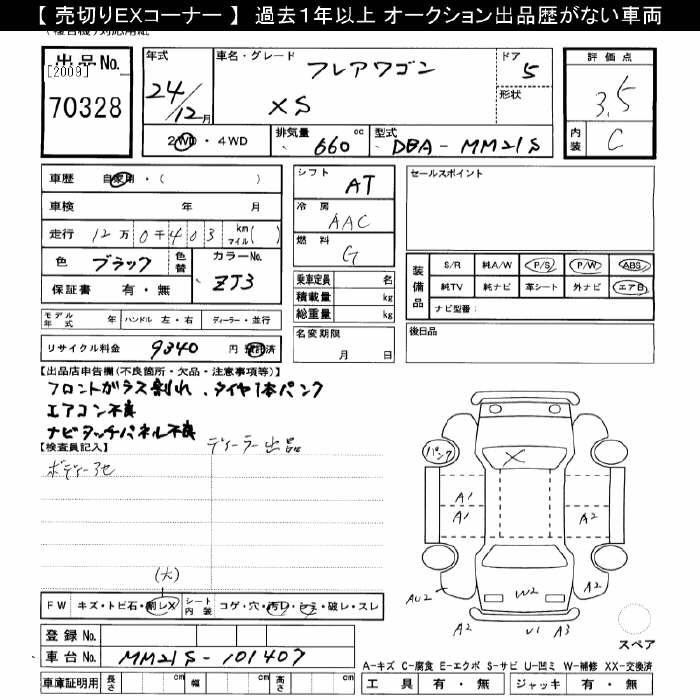 【 売切りEXコーナー 】 過去1年以上 オークション出品歴がない車両
出品No.
[2009]
70328
年式
24/12月
車名・グレード
フレアワゴン
XS
ドア
5
形状
2WD・4WD
排気量 660 cc
型式 DBA-MM21S
評価点
3.5
内装 C
車歴 自家用・( )
車検 年 月
走行 12万0千403 km マイル( )
色 ブラック 色替
カラーNo. ZJ3
保証書 有・無
モデル年式 年 ハンドル 左・右 ディーラー・並行
リサイクル料金 9340 円 預託済
シフト AT
冷房 AAC
燃料 G
乗車定員 名
積載量 kg
総重量 kg
名変期限
月 日
セールスポイント
装備品
S/R 純A/W P/S P/W ABS
純TV 純ナビ 革シート 外ナビ エアB
ナビ型番:
後日品
【出品店申告欄(不良箇所・欠品・注意事項等)】
フロントガラス割れ、タイヤ1本パンク
エアコン不良
ナビタッチパネル不良
【検査員記入】
ディーラー出品
ボディー3セ
(大)
FW キズ・トビ石・割レX
シート内装 コゲ・穴・汚レ・シミ・破レ・スレ
登録No.
車台No. MM21S-101407
車庫証明用 長さ cm 幅 cm 高さ cm
パンク
X
A1
A1
A2
AU2
W2
A2
A2
U1
A3
スペア
A-キズ C-腐食 E-エクボ S-サビ U-凹ミ W-補修 XX-交換済
工具 有・無 ジャッキ 有・無